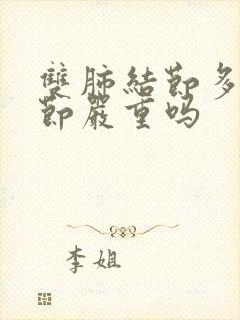 雙肺結節多
節嚴重吗
李姐